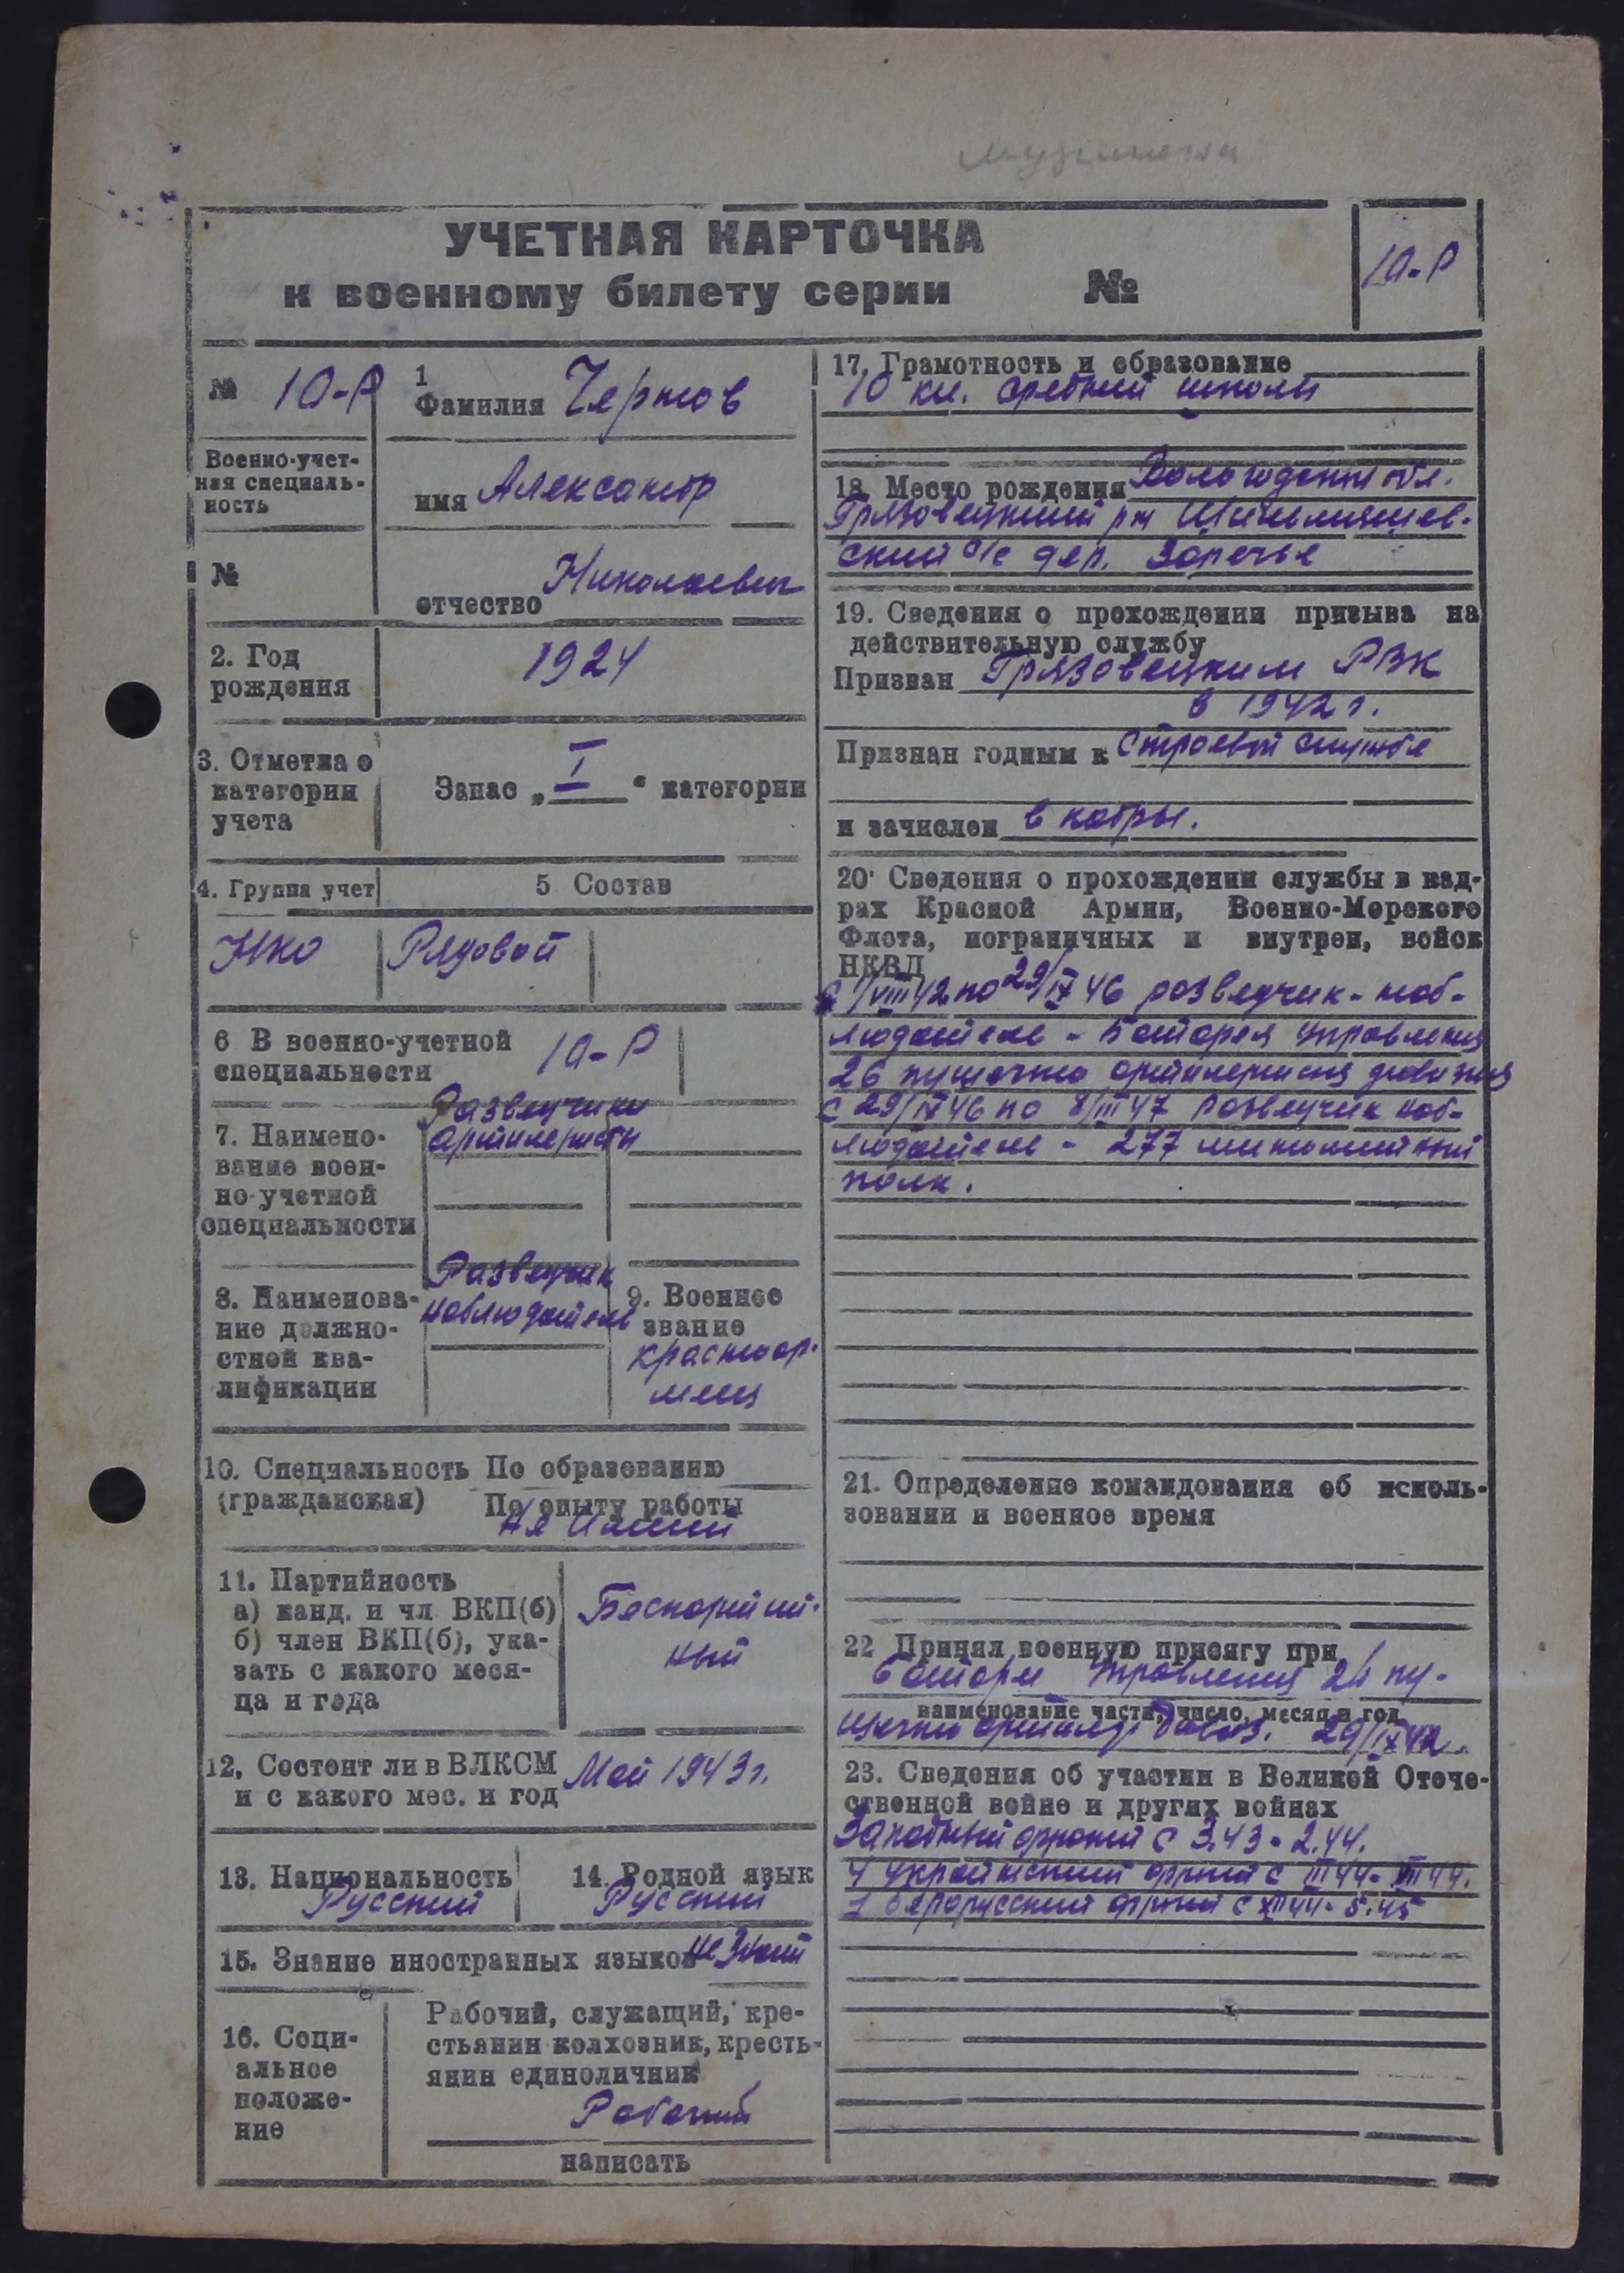 УЧЕТНАЯ КАРТОЧКА
к военному билету серии №
10-Р
№ 10-Р
Военно-учет-
ная специаль-
ность
№
1
Фамилия Чернов
имя Александр
отчество Николаевич
2. Год
рождения
1924
3. Отметка о
категории
учета
Запас „ I “ категории
4. Группа учет
5 Состав
НКО
Рядовой
6 В военно-учетной
специальности
10-Р
7. Наимено-
вание воен-
но-учетной
специальности
Разведчики
артиллеристы
8. Наименова-
ние должно-
стной ква-
лификации
Разведчик
наблюдатель
9. Военное
звание
красноар-
меец
10. Специальность По образованию
(гражданская) По опыту работы
Не имеет
11. Партийность
а) канд. и чл ВКП(б)
б) член ВКП(б), ука-
зать с какого меся-
ца и года
Беспартий-
ный
12. Состоит ли в ВЛКСМ
и с какого мес. и год
Май 1943 г.
13. Национальность
Русский
14. Родной язык
Русский
15. Знание иностранных языков не знает
16. Соци-
альное
положе-
ние
Рабочий, служащий, кре-
стьянин колхозник, кресть-
янин единоличник
Рабочий
написать
17. Грамотность и образование
10 кл. средней школы
18. Место рождения Вологодская обл.
Грязовецкий рн
ский с/с дер. Заречье
19. Сведения о прохождении призыва на
действительную службу
Призван Грязовецким РВК
в 1942 г.
Признан годным к строевой службе
и зачислен в кадры.
20 Сведения о прохождении службы в кад-
рах Красной Армии, Военно-Морского
Флота, пограничных и внутрен, войск
НКВД
с 1/VIII 42 по 29/IX 46 разведчик-наб-
людатель - Батарея управления
26 пушечно артиллерийская дивизия
с 29/IX 46 по 8/III 47 разведчик наб-
людатель - 277 минометный
полк.
21. Определение командования об исполь-
зовании и военное время
22 Принял военную присягу при
батареи управления 26 пу-
наименование части, число, месяц и год
шечно артиллер. дивиз. 29/IX 42.
23. Сведения об участии в Великой Отече-
ственной войне и других войнах
Западный фронт с 3.43 - 2.44.
4 Украинский фронт с III 44 - VIII 44.
1 Белорусский фронт с XII 44 - 5.45